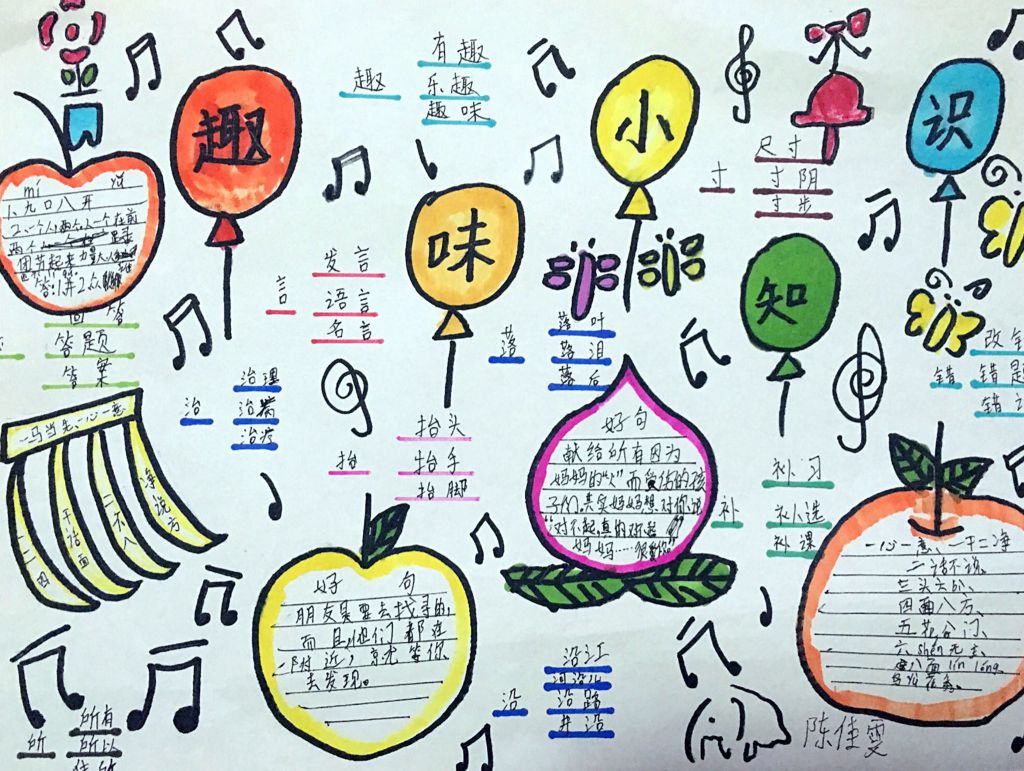 趣
味
小
知
识
趣
有趣
乐趣
趣味
寸
尺寸
寸阴
寸步
mí
1、九口八开
2、一个人,两个人,一个在前
两个
团节起来力量大
答:1.井2.众
言
发言
语言
名言
回答
答题
答案
治
治理
治病
治疗
抬
抬头
抬手
抬脚
落
落叶
落泪
落后
错
错题
补
补习
补选
补课
一马当先、一心一意
一二四
干话面
二不八
净说方
好句
献给所有因为
妈妈的“火”而受伤的孩
子们,其实妈妈想对你说
“对不起,真的对不起
妈妈……很爱你”
好句
朋友是要去找寻的,
而且,他们都在
附近,京尤等你
去发现。
一心一意、一干二净
二话不说、
三头六臂、
四面八方、
五花八门、
六shén无主、
八面lín lóng
沿
沿江
河沿儿
沿路
井沿
所
所有
所以
陈佳雯